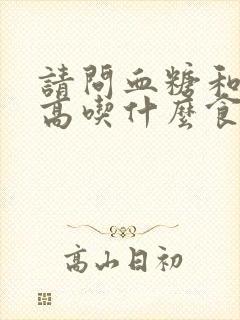 請問血糖和
高喫什麼食
高山日初